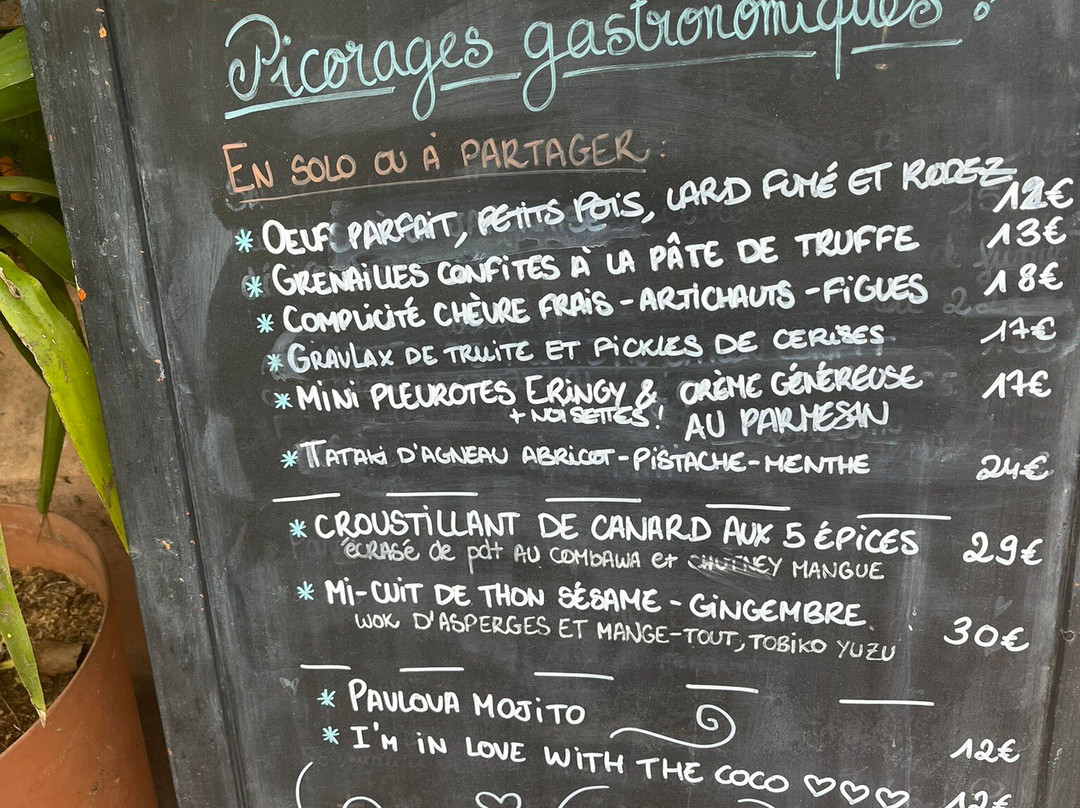 Picorages gastronomiques :
EN SOLO OU À PARTAGER :
* OEUF PARFAIT, PETITS POIS, LARD FUMÉ ET RODEZ 12€
* GRENAILLES CONFITES À LA PÂTE DE TRUFFE 13€
* COMPLICITÉ CHÈVRE FRAIS - ARTICHAUTS - FIGUES 18€
* GRAVLAX DE TRUITE ET PICKLES DE CERISES 17€
* MINI PLEUROTES ERINGY & CRÈME GÉNÉREUSE 17€
+ NOISETTES ! AU PARMESAN
* TATAKI D'AGNEAU ABRICOT - PISTACHE - MENTHE 24€
* CROUSTILLANT DE CANARD AUX 5 ÉPICES 29€
écrasé de pdt AU COMBAWA et CHUTNEY MANGUE
* MI-CUIT DE THON SÉSAME - GINGEMBRE 30€
WOK D'ASPERGES ET MANGE-TOUT, TOBIKO YUZU
* PAVLOVA MOJITO 12€
* I'M IN LOVE WITH THE COCO ♡♡♡ 12€